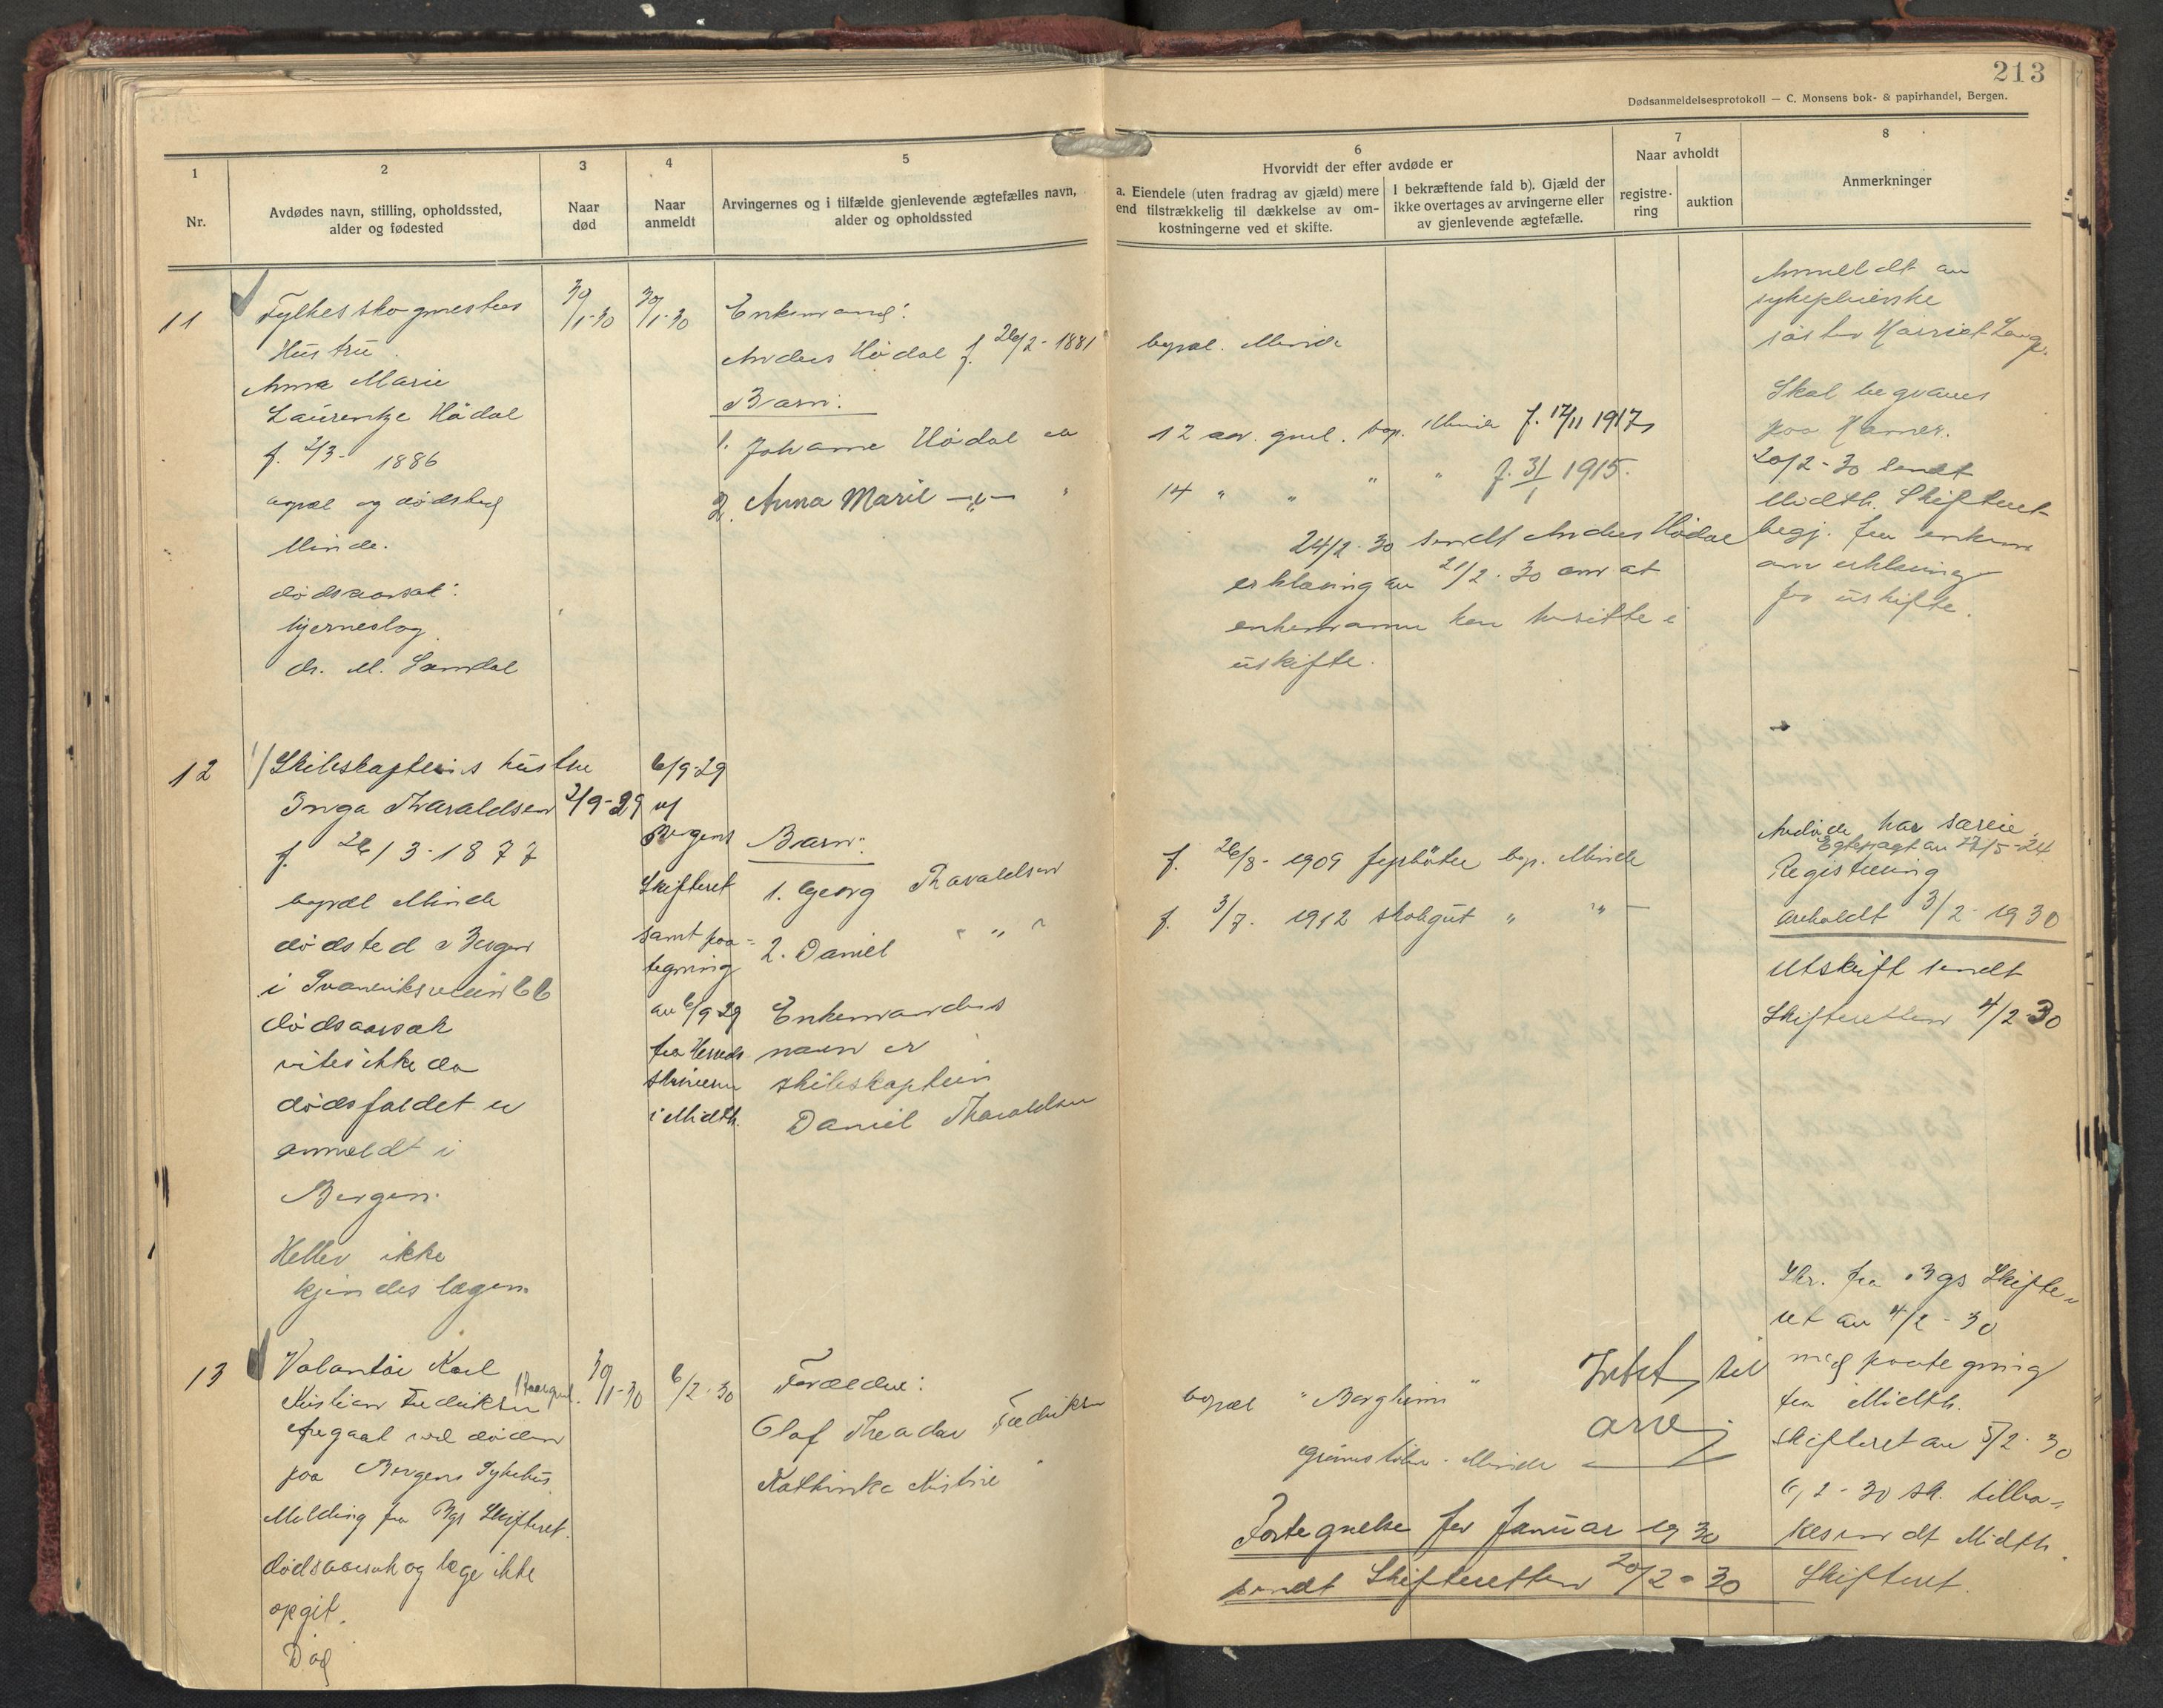 213
Dødsanmeldelsesprotokoll — C. Monsens bok- & papirhandel, Bergen.
1
Nr.
2
Avdødes navn, stilling, opholdssted,
alder og fødested
3
Naar
død
4
Naar
anmeldt
5
Arvingernes og i tilfælde gjenlevende ægtefælles navn,
alder og opholdssted
6
Hvorvidt der efter avdøde er
a. Eiendele (uten fradrag av gjæld) mere
end tilstrækkelig til dækkelse av om-
kostningerne ved et skifte.
I bekræftende fald b). Gjæld der
ikke overtages av arvingerne eller
av gjenlevende ægtefælle.
7
Naar avholdt
registre-
ring
auktion
8
Anmerkninger
11
Fylkesskogmesters
Hustru
Anna Marie
Laurentze Hødal
f. 2/3 - 1886
bopæl og dødsted
Minde.
dødsaarsak:
hjerneslag.
dr. M. Samdal
30/1-30
30/1-30
Enkemand:
Anders Hødal f. 26/2 - 1881
Barn:
1. Johanne Hødal ca
2. Anna Marie -„- "
bopæl. Minde
12 aar. gml. bop. Minde f. 17/11 1917
14 " " " " f. 31/1 1915.
24/2-30 sendt Anders Hødal
erklæring av 21/2-30 om at
enkemannen kan besitte i
uskifte.
Anmeldt av
sykepleierske
søster Harriet Lange.
Skal begraves
paa Hamar.
20/2-30 sendt
Midth. Skifteret
begj. fra enkem.
om erklæring
for uskifte.
12
1) Skibskapteins hustru
Inga Tharaldsen
f. 26/3-1877
bopæl Minde
dødsted Bergen
i 66
dødsaarsak
vites ikke da
dødsfaldet er
anmeldt i
Bergen.
Heller ikke
kjendes lægen.
2/9-29
6/9-29
af
Bergens
Skifteret
samt paa-
tegning
av 6/9-29
fra Herreds-
skriveren
i Midth.
Barn:
1. Georg Tharaldsen
2. Daniel " „ "
Enkemandens
navn er
skibskaptein
Daniel Tharaldsen
f. 26/8 - 1909 fyrbøter bop. Minde
f. 3/7. 1912 skolegut " " -
Avdøde har særeie.
Egtepagt av 27/5-24
Registrering
avholdt 3/2-1930
Utskrift sendt
Skifteretten 4/2-30
13
Volontør Karl
Kristian Fredriksen 17 aar gml.
Avgaat ved døden
paa Bergens Sykehus.
Melding fra Bgs Skifteret.
dødsaarsak og læge ikke
opgit.
Død
30/1-30
6/2-30
Forældre:
Olaf Theodor Fredriksen
Kathinka Kristine "
bopæl "Bergheim"
Minde
Intet til
arv
Fortegnelse for Januar 1930
sendt Skifteretten 20/2-30
Skr. fra Bgs Skifte-
ret av 4/2-30
med paategning
fra Midth.
skifteret av 5/2-30
6/2-30 sk. tilba-
kesendt Midth.
Skifteret.